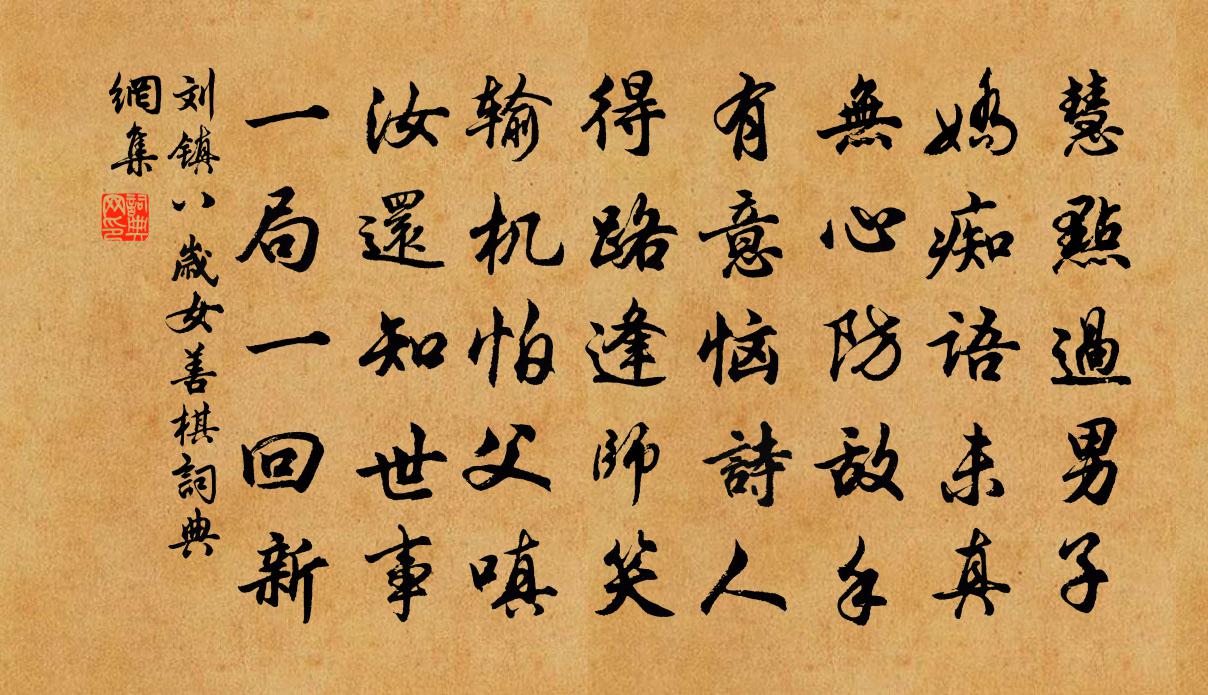 慧點過男子
嬌痴語未真
無心防敌手
有意恼詩人
得路逢師笑
输机怕父嗔
汝還知世事
一局一回新
刘镇八歲女善棋詞典
網集
詞典
网印